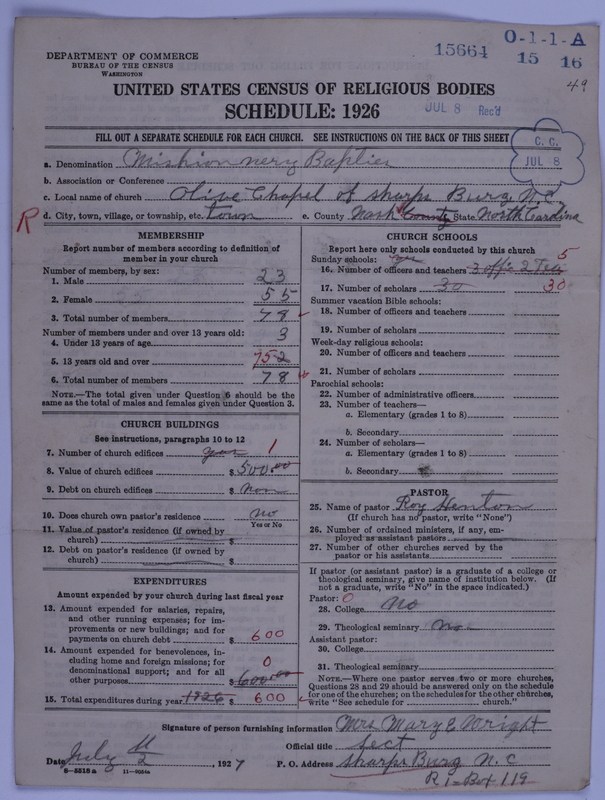 15664 O-1-1-A
15 16
49
DEPARTMENT OF COMMERCE
BUREAU OF THE CENSUS
WASHINGTON
UNITED STATES CENSUS OF RELIGIOUS BODIES
SCHEDULE: 1926
JUL 8 Rec'd
FILL OUT A SEPARATE SCHEDULE FOR EACH CHURCH. SEE INSTRUCTIONS ON THE BACK OF THIS SHEET
C. C.
JUL 8
a. Denomination Mishionnery Baptier
b. Association or Conference
c. Local name of church Olive Chapel of sharps Burg, N C
R d. City, town, village, or township, etc. town e. County Nash County State North Carolina
MEMBERSHIP
Report number of members according to definition of
member in your church
Number of members, by sex:
1. Male 23
2. Female 55
3. Total number of members 78
Number of members under and over 13 years old:
4. Under 13 years of age 3
5. 13 years old and over 752
6. Total number of members 78
NOTE.—The total given under Question 6 should be the
same as the total of males and females given under Question 3.
CHURCH BUILDINGS
See instructions, paragraphs 10 to 12
7. Number of church edifices 1
8. Value of church edifices $500.00
9. Debt on church edifices $ non
10. Does church own pastor's residence no
Yes or No
11. Value of pastor's residence (if owned by
church) $
12. Debt on pastor's residence (if owned by
church) $
EXPENDITURES
Amount expended by your church during last fiscal year
13. Amount expended for salaries, repairs,
and other running expenses; for im-
provements or new buildings; and for
payments on church debt $ 600
14. Amount expended for benevolences, in-
cluding home and foreign missions; for
denominational support; and for all
other purposes 0 $600.00
15. Total expenditures during year 1926 $ 600
CHURCH SCHOOLS
Report here only schools conducted by this church
Sunday schools: yes 5
16. Number of officers and teachers 3 offic 2 Tea
17. Number of scholars 30 30
Summer vacation Bible schools:
18. Number of officers and teachers
19. Number of scholars
Week-day religious schools:
20. Number of officers and teachers
21. Number of scholars
Parochial schools:
22. Number of administrative officers
23. Number of teachers—
a. Elementary (grades 1 to 8)
b. Secondary
24. Number of scholars—
a. Elementary (grades 1 to 8)
b. Secondary
PASTOR
25. Name of pastor Roy Henton
(If church has no pastor, write "None")
26. Number of ordained ministers, if any, em-
ployed as assistant pastors
27. Number of other churches served by the
pastor or his assistants
If pastor (or assistant pastor) is a graduate of a college or
theological seminary, give name of institution below. (If
not a graduate, write "No" in the space indicated.)
Pastor: 0
28. College no
29. Theological seminary non
Assistant pastor:
30. College
31. Theological seminary
NOTE.—Where one pastor serves two or more churches,
Questions 28 and 29 should be answered only on the schedule
for one of the churches; on the schedules for the other churches,
write "See schedule for church."
Signature of person furnishing information Mrs Mary E Wright
Official title sect
Date July 2, 1927 P. O. Address sharps Burg N. C
R 1 - Box 119
8—5818 a 11—9054a